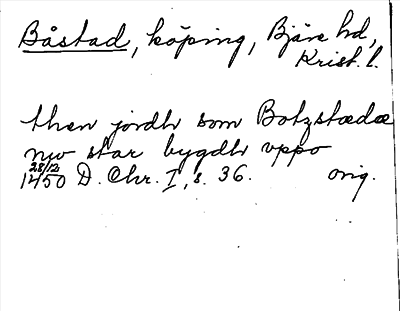 Båstad, köping, Bjäre hd,
Krist. l.
then jordh som Botzstædæ
nw star bygdh vppo
28/12
1450 D. Chr. I, s. 36. orig.